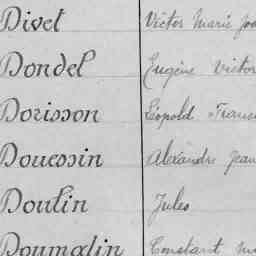 Divet Victor Marie
Dondel Eugène Victor
Dorisson Léopold
Douessin Alexandre Jean
Doutin Jules
Doumalin Constant